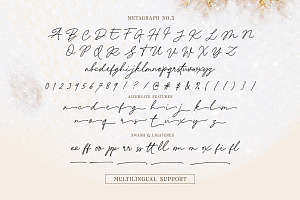 METAGRAPH NO.3
A B C D E F G H I J K L M N
O P Q R S T U V W X Y Z
abcdefghijklmnopqrstuvwxyz
0123456789!?/@#$&%(*{[]})
ALTERNATE FEATURES
a b c d e f g h i j k l m
n o p q r s t u v w x y z
SWASH & LIGATURES
ee ff oo pp rr ss tt ll mm nn fi fl
MULTILINGUAL SUPPORT